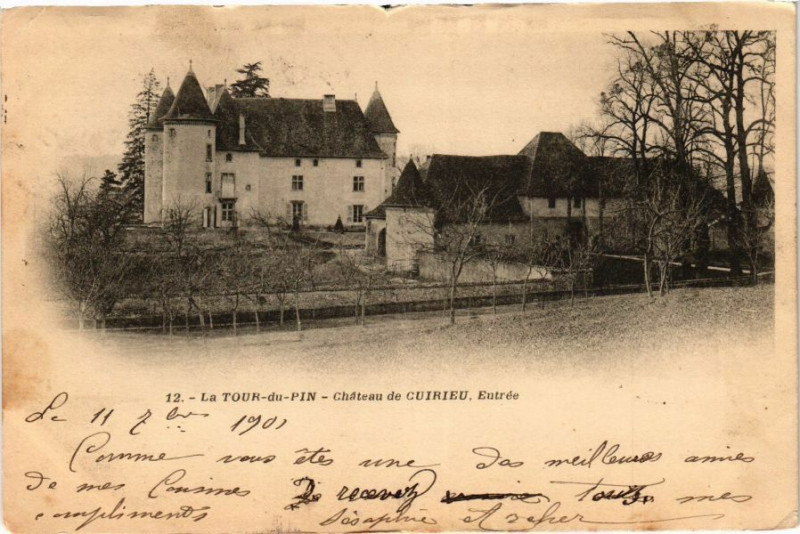 12. - La TOUR-du-PIN - Château de CUIRIEU, Entrée
Le 11 7bre 1901
Comme vous êtes une des meilleures amies
de mes Cousines recevez tous mes
compliments